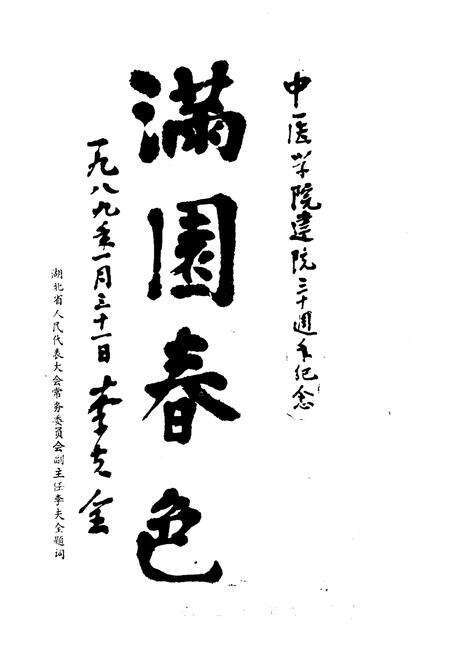 中医学院建院三十週年纪念
滿園春色
一九八九年一月三十一日 李夫全
湖北省人民代表大会常务委员会副主任李夫全题词